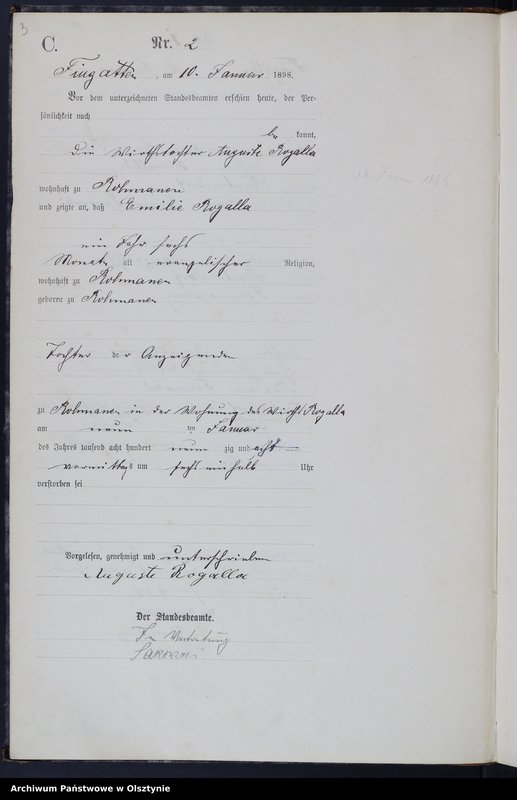 3
C.
Nr. 2
Fingatten, am 10. Januar 1898.
Vor dem unterzeichneten Standesbeamten erschien heute, der Per-
sönlichkeit nach
be kannt,
die Wirthstochter Auguste Rogalla
wohnhaft zu Rohmanen
und zeigte an, daß Emilie Rogalla
ein Jahr sechs
Monate alt evangelischer Religion,
wohnhaft zu Rohmanen
geboren zu Rohmanen
Tochter der Anzeigenden
zu Rohmanen in der Wohnung des Wirths Rogalla
am neun ten Januar
des Jahres tausend acht hundert neun zig und acht
vormittags um sechs ein halb Uhr
verstorben sei
Vorgelesen, genehmigt und unterschrieben
Auguste Rogalla
Der Standesbeamte.
In Vertretung
Archiwum Państwowe w Olsztynie